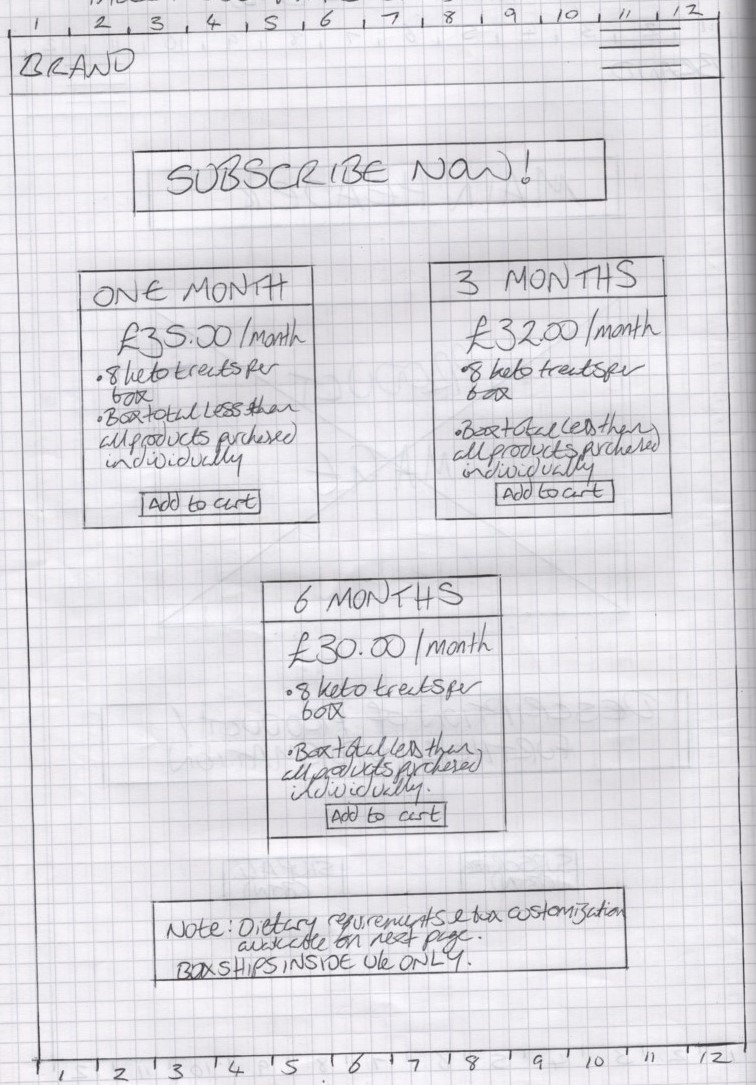 1 2 3 4 5 6 7 8 9 10 11 12
BRAND
SUBSCRIBE NOW!
ONE MONTH
£35.00/month
• 8 keto treats per
box
• Box total less than
all products purchased
individually
Add to cart
3 MONTHS
£32.00/month
• 8 keto treats per
box
• Box total less than
all products purchased
individually
Add to cart
6 MONTHS
£30.00/month
• 8 keto treats per
box
• Box total less than
all products purchased
individually.
Add to cart
Note: Dietary requirements & box customization
available on next page.
BOX SHIPS INSIDE UK ONLY.
1 2 3 4 5 6 7 8 9 10 11 12